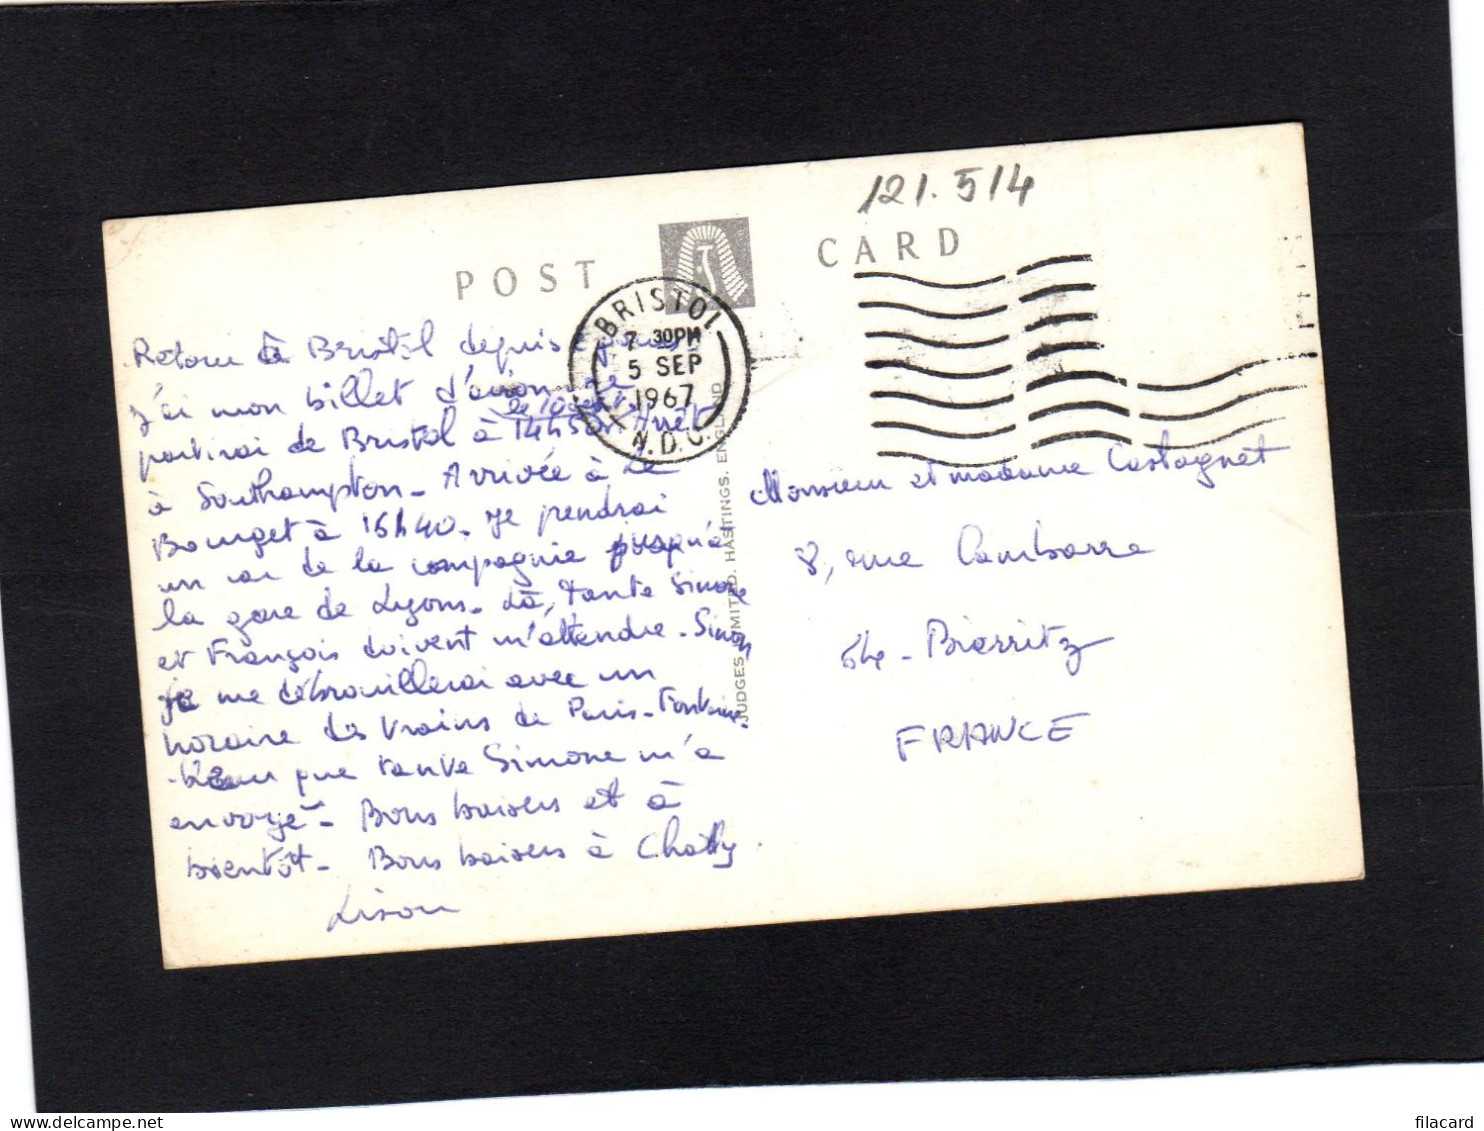 121.514
POST CARD
BRISTOL
7 30PM
5 SEP
1967
N.D.O.
Retour à Bristol depuis
J'ai mon billet d'avion. Je
partirai de Bristol à 14h50. Arrêt
à Southampton - Arrivée à Le
Bourget à 16h40. Je prendrai
un car de la compagnie jusqu'à
la gare de Lyons. Là, tante Simone
et François doivent m'attendre. Sinon
je me débrouillerai avec un
horaire des trains de Paris-Fontaine-
-bleau que tante Simone m'a
envoyé - Bons baisers et à
bientôt - Bons baisers à Chatty.
Lison
JUDGES LIMITED. HASTINGS. ENGLAND
Monsieur et madame Castagnet
8, rue Cambarre
64 - Biarritz
FRANCE
filacard